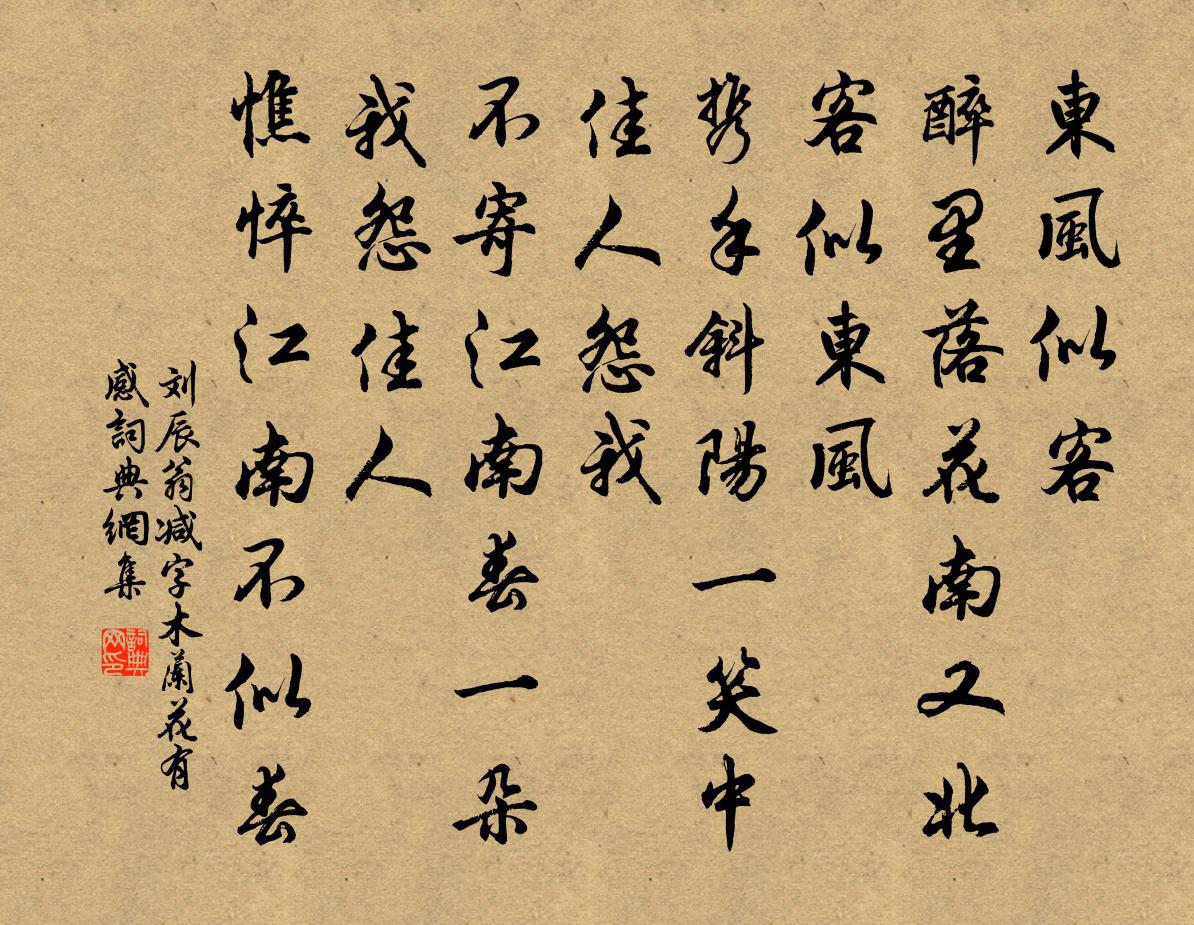 東風似客
醉里落花南又北
客似東風
携手斜陽一笑中
佳人怨我
不寄江南春一朵
我怨佳人
憔悴江南不似春
刘辰翁减字木蘭花有
感詞典網集
詞典
网印